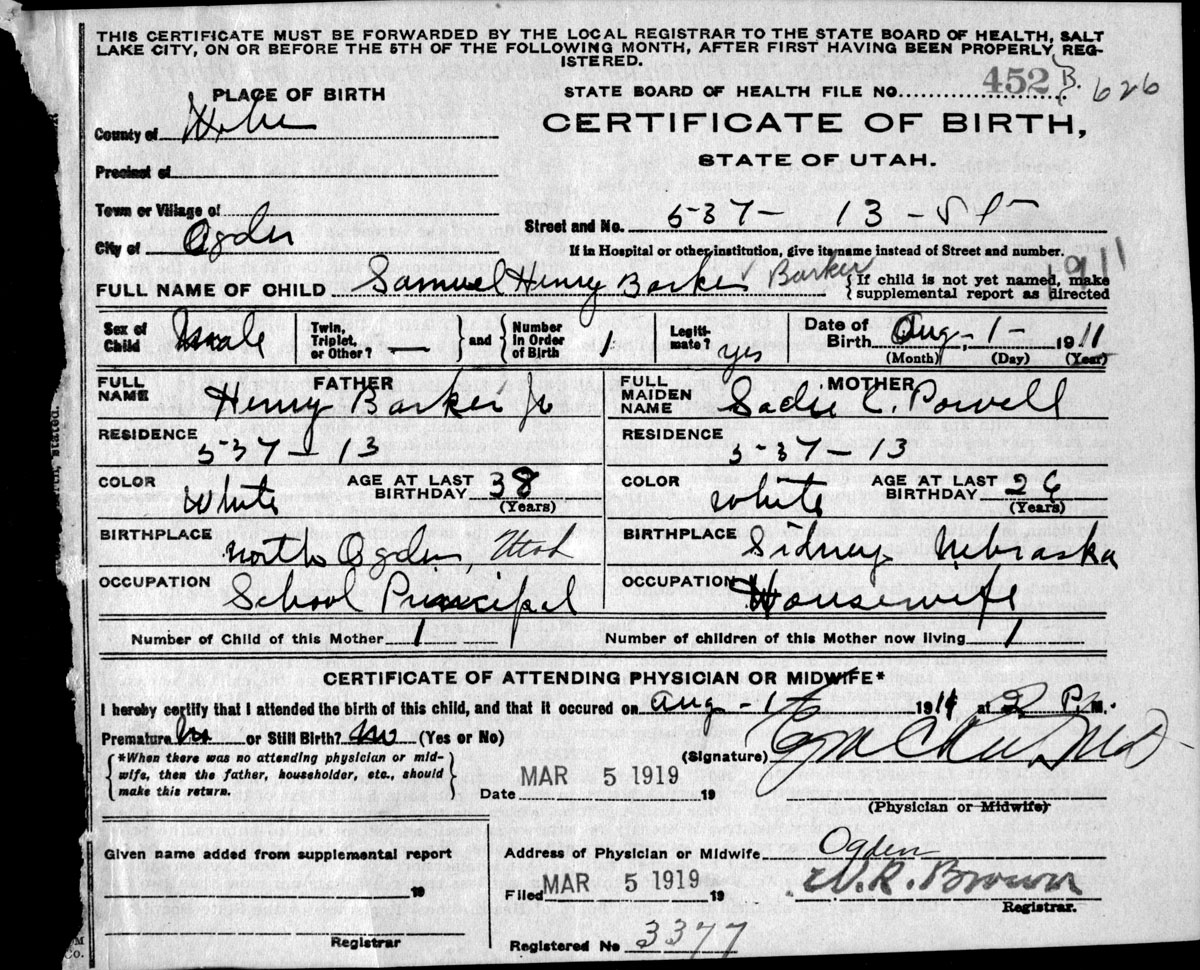 THIS CERTIFICATE MUST BE FORWARDED BY THE LOCAL REGISTRAR TO THE STATE BOARD OF HEALTH, SALT
LAKE CITY, ON OR BEFORE THE 5TH OF THE FOLLOWING MONTH, AFTER FIRST HAVING BEEN PROPERLY REG-
ISTERED.
PLACE OF BIRTH
STATE BOARD OF HEALTH FILE NO. 452 B. 626
County of
CERTIFICATE OF BIRTH,
STATE OF UTAH.
Precinct of
Town or Village of
Street and No. 537 - 13 - St
City of Ogden
If in Hospital or other institution, give its name instead of Street and number.
1911
FULL NAME OF CHILD Samuel Henry Barker Barker { If child is not yet named, make
supplemental report as directed
Sex of Child Male
Twin, Triplet, or Other? —
} and {
Number In Order of Birth 1
Legiti-mate? yes
Date of Birth Aug. 1 - 1911
(Month) (Day) (Year)
FATHER
FULL NAME Henry Barker Jr
MOTHER
FULL MAIDEN NAME Sadie C. Powell
RESIDENCE 537 - 13
RESIDENCE 537 - 13
COLOR White AGE AT LAST BIRTHDAY 38 (Years)
COLOR White AGE AT LAST BIRTHDAY 26 (Years)
BIRTHPLACE North Ogden, Utah
BIRTHPLACE Sidney Nebraska
OCCUPATION School Principal
OCCUPATION Housewife
Number of Child of this Mother 1
Number of children of this Mother now living 1
CERTIFICATE OF ATTENDING PHYSICIAN OR MIDWIFE*
I hereby certify that I attended the birth of this child, and that it occured on Aug - 1 1911 at 2 P.M.
Premature No or Still Birth? No (Yes or No)
(Signature)
{ *When there was no attending physician or mid-
wife, then the father, householder, etc., should
make this return. }
Date MAR 5 1919 19
(Physician or Midwife)
Given name added from supplemental report
Address of Physician or Midwife Ogden
19
Filed MAR 5 1919 19
W. R. Brown
Registrar.
Registrar
Registered No 3377